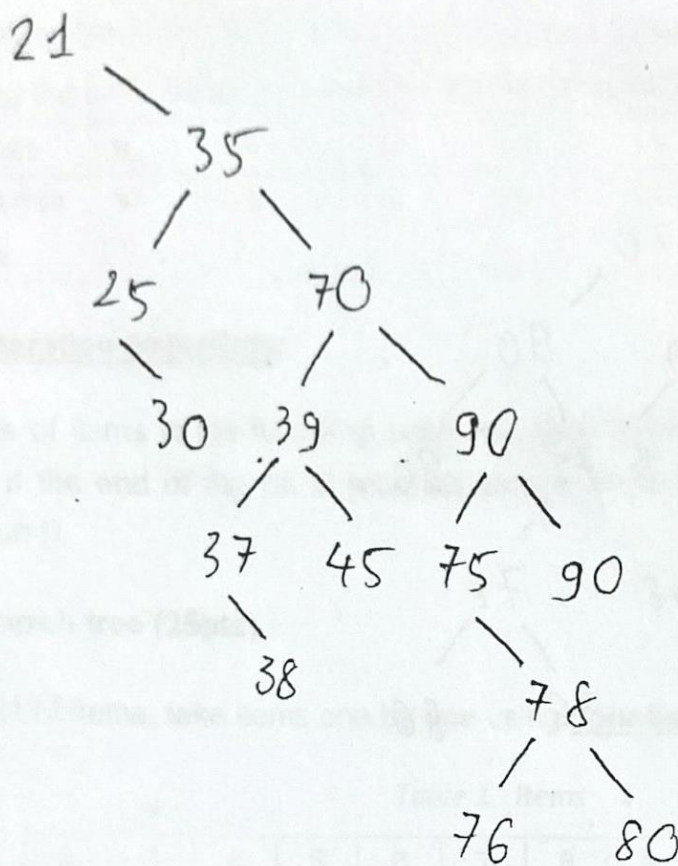 21
35
25 70
30 39 90
37 45 75 90
38 78
76 80